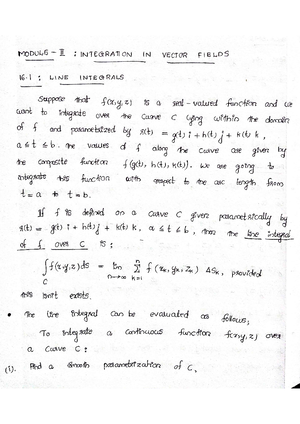 MODULE - II : INTEGRATION IN VECTOR FIELDS
16.1 : LINE INTEGRALS
Suppose that f(x,y,z) is a real-valued function and we
want to integrate over the curve C lying within the domain
of f and parametrized by r(t) = g(t) i + h(t) j + k(t) k,
a ≤ t ≤ b. The values of f along the curve are given by
the composite function f(g(t), h(t), k(t)). We are going to
integrate this function with respect to the arc length from
t=a to t=b.
If f is defined on a curve C given parametrically by
r(t) = g(t) i + h(t) j + k(t) k, a ≤ t ≤ b, then the line integral
of f over C is:
∫_C f(x,y,z) ds = lim_{n→∞} Σ_{k=1}^{n} f(x_k, y_k, z_k) Δs_k, provided
this limit exists.
The line integral can be evaluated as follows;
To integrate a continuous function f(x,y,z) over
a curve C:
(i). Find a smooth parametrization of C,